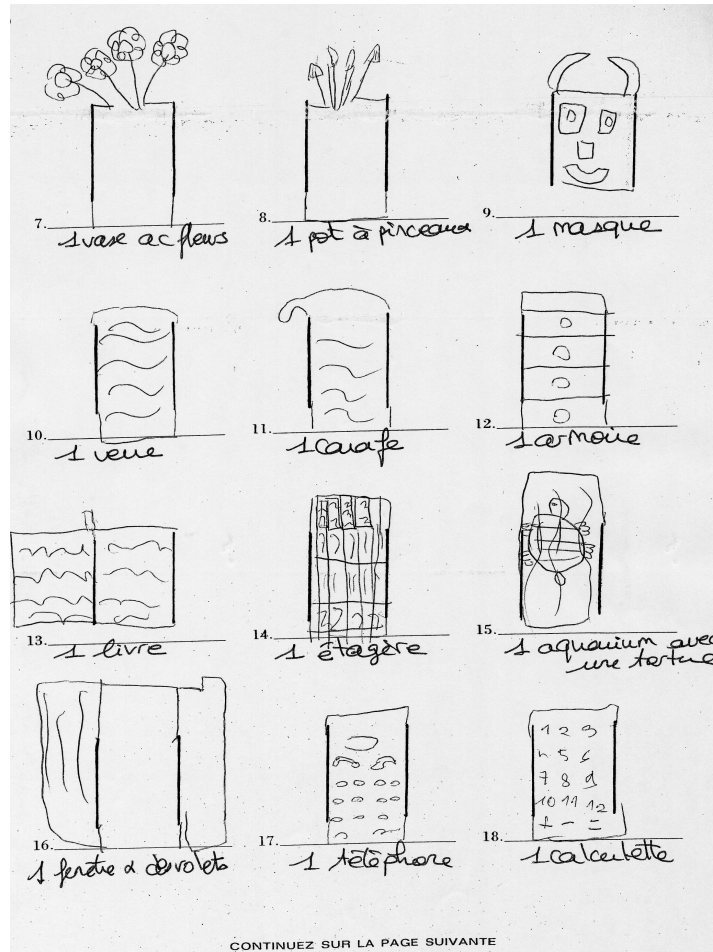 7.
1 vase ac fleurs
8.
1 pot à pinceaux
9.
1 masque
10.
1 verre
11.
1 carafe
12.
1 armoire
13.
1 livre
14.
1 étagère
15.
1 aquarium avec
une tortue
16.
1 fenêtre & des volets
17.
1 téléphone
1 2 3
4 5 6
7 8 9
10 11 12
+ - =
18.
1 calculette
CONTINUEZ SUR LA PAGE SUIVANTE